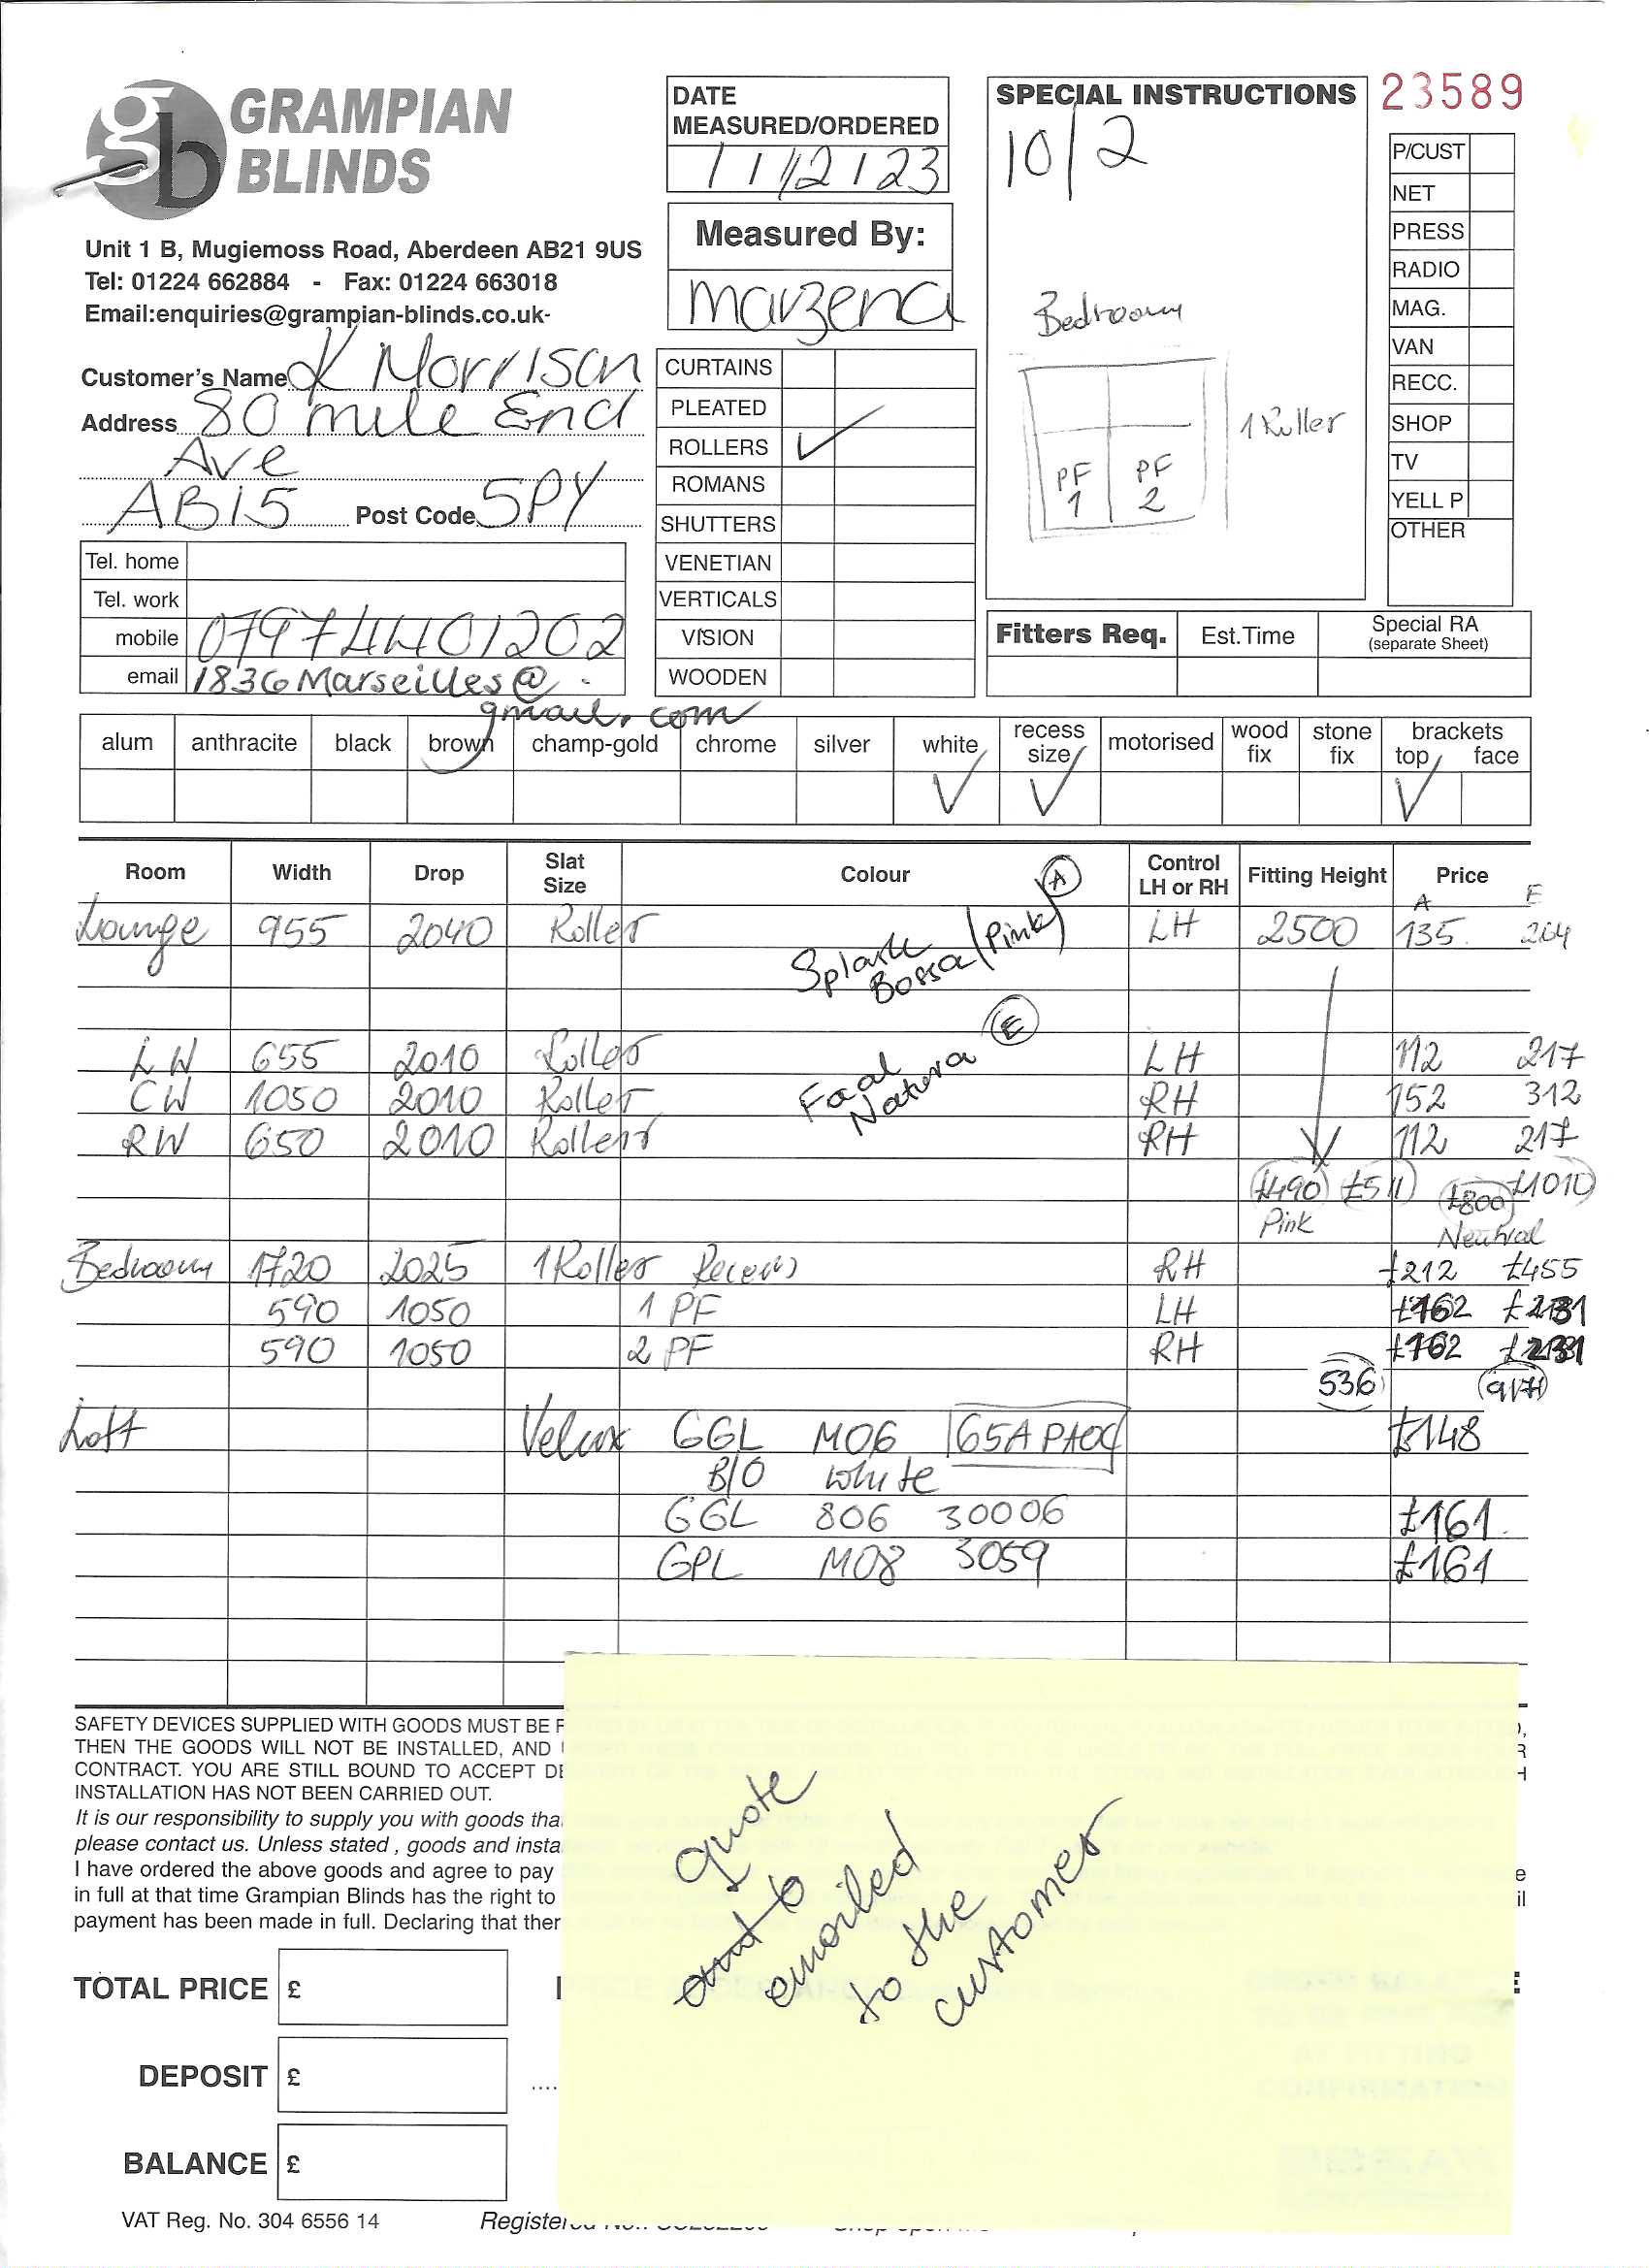 GRAMPIAN
BLINDS
gb
Unit 1 B, Mugiemoss Road, Aberdeen AB21 9US
Tel: 01224 662884 - Fax: 01224 663018
Email:enquiries@grampian-blinds.co.uk-
Customer's Name K Morrison
Address 80 mile End
Ave
AB15 Post Code 5PY
Tel. home
Tel. work
mobile 07974401202
email 1836Marseilles@
gmail.com
DATE
MEASURED/ORDERED
1 11/2 1 23
Measured By:
Marzena
CURTAINS
PLEATED
ROLLERS ✓
ROMANS
SHUTTERS
VENETIAN
VERTICALS
VISION
WOODEN
SPECIAL INSTRUCTIONS
10/2
Bedroom
PF 1 PF 2
1 Roller
23589
P/CUST
NET
PRESS
RADIO
MAG.
VAN
RECC.
SHOP
TV
YELL P
OTHER
Fitters Req. Est.Time Special RA
(separate Sheet)
alum anthracite black brown champ-gold chrome silver white recess size motorised wood fix stone fix brackets top face
✓ ✓ ✓
Room Width Drop Slat Size Colour Control LH or RH Fitting Height Price
A E
Lounge 955 2040 Roller Splash Bossa (Pink) A LH 2500 135 264
LW 655 2010 Roller Natura E LH 112 217
CW 1050 2010 Roller RH 152 312
RW 650 2010 Roller RH 112 217
£490 £511 £800 £1010
Pink Neutral
Bedroom 1720 2025 1 Roller Recess RH £212 £455
590 1050 1 PF LH £162 £231
590 1050 2 PF RH £162 £231
536 917
Loft Velux GGL M06 65APA04 £148
B/O white
GGL 806 30006 £161
GPL M08 3059 £161
SAFETY DEVICES SUPPLIED WITH GOODS MUST BE
THEN THE GOODS WILL NOT BE INSTALLED, AND
CONTRACT. YOU ARE STILL BOUND TO ACCEPT
INSTALLATION HAS NOT BEEN CARRIED OUT.
It is our responsibility to supply you with goods
please contact us. Unless stated , goods and
I have ordered the above goods and agree to pay
in full at that time Grampian Blinds has the right to
payment has been made in full. Declaring that
quote
emailed
to the
customer
TOTAL PRICE £
DEPOSIT £
BALANCE £
VAT Reg. No. 304 6556 14